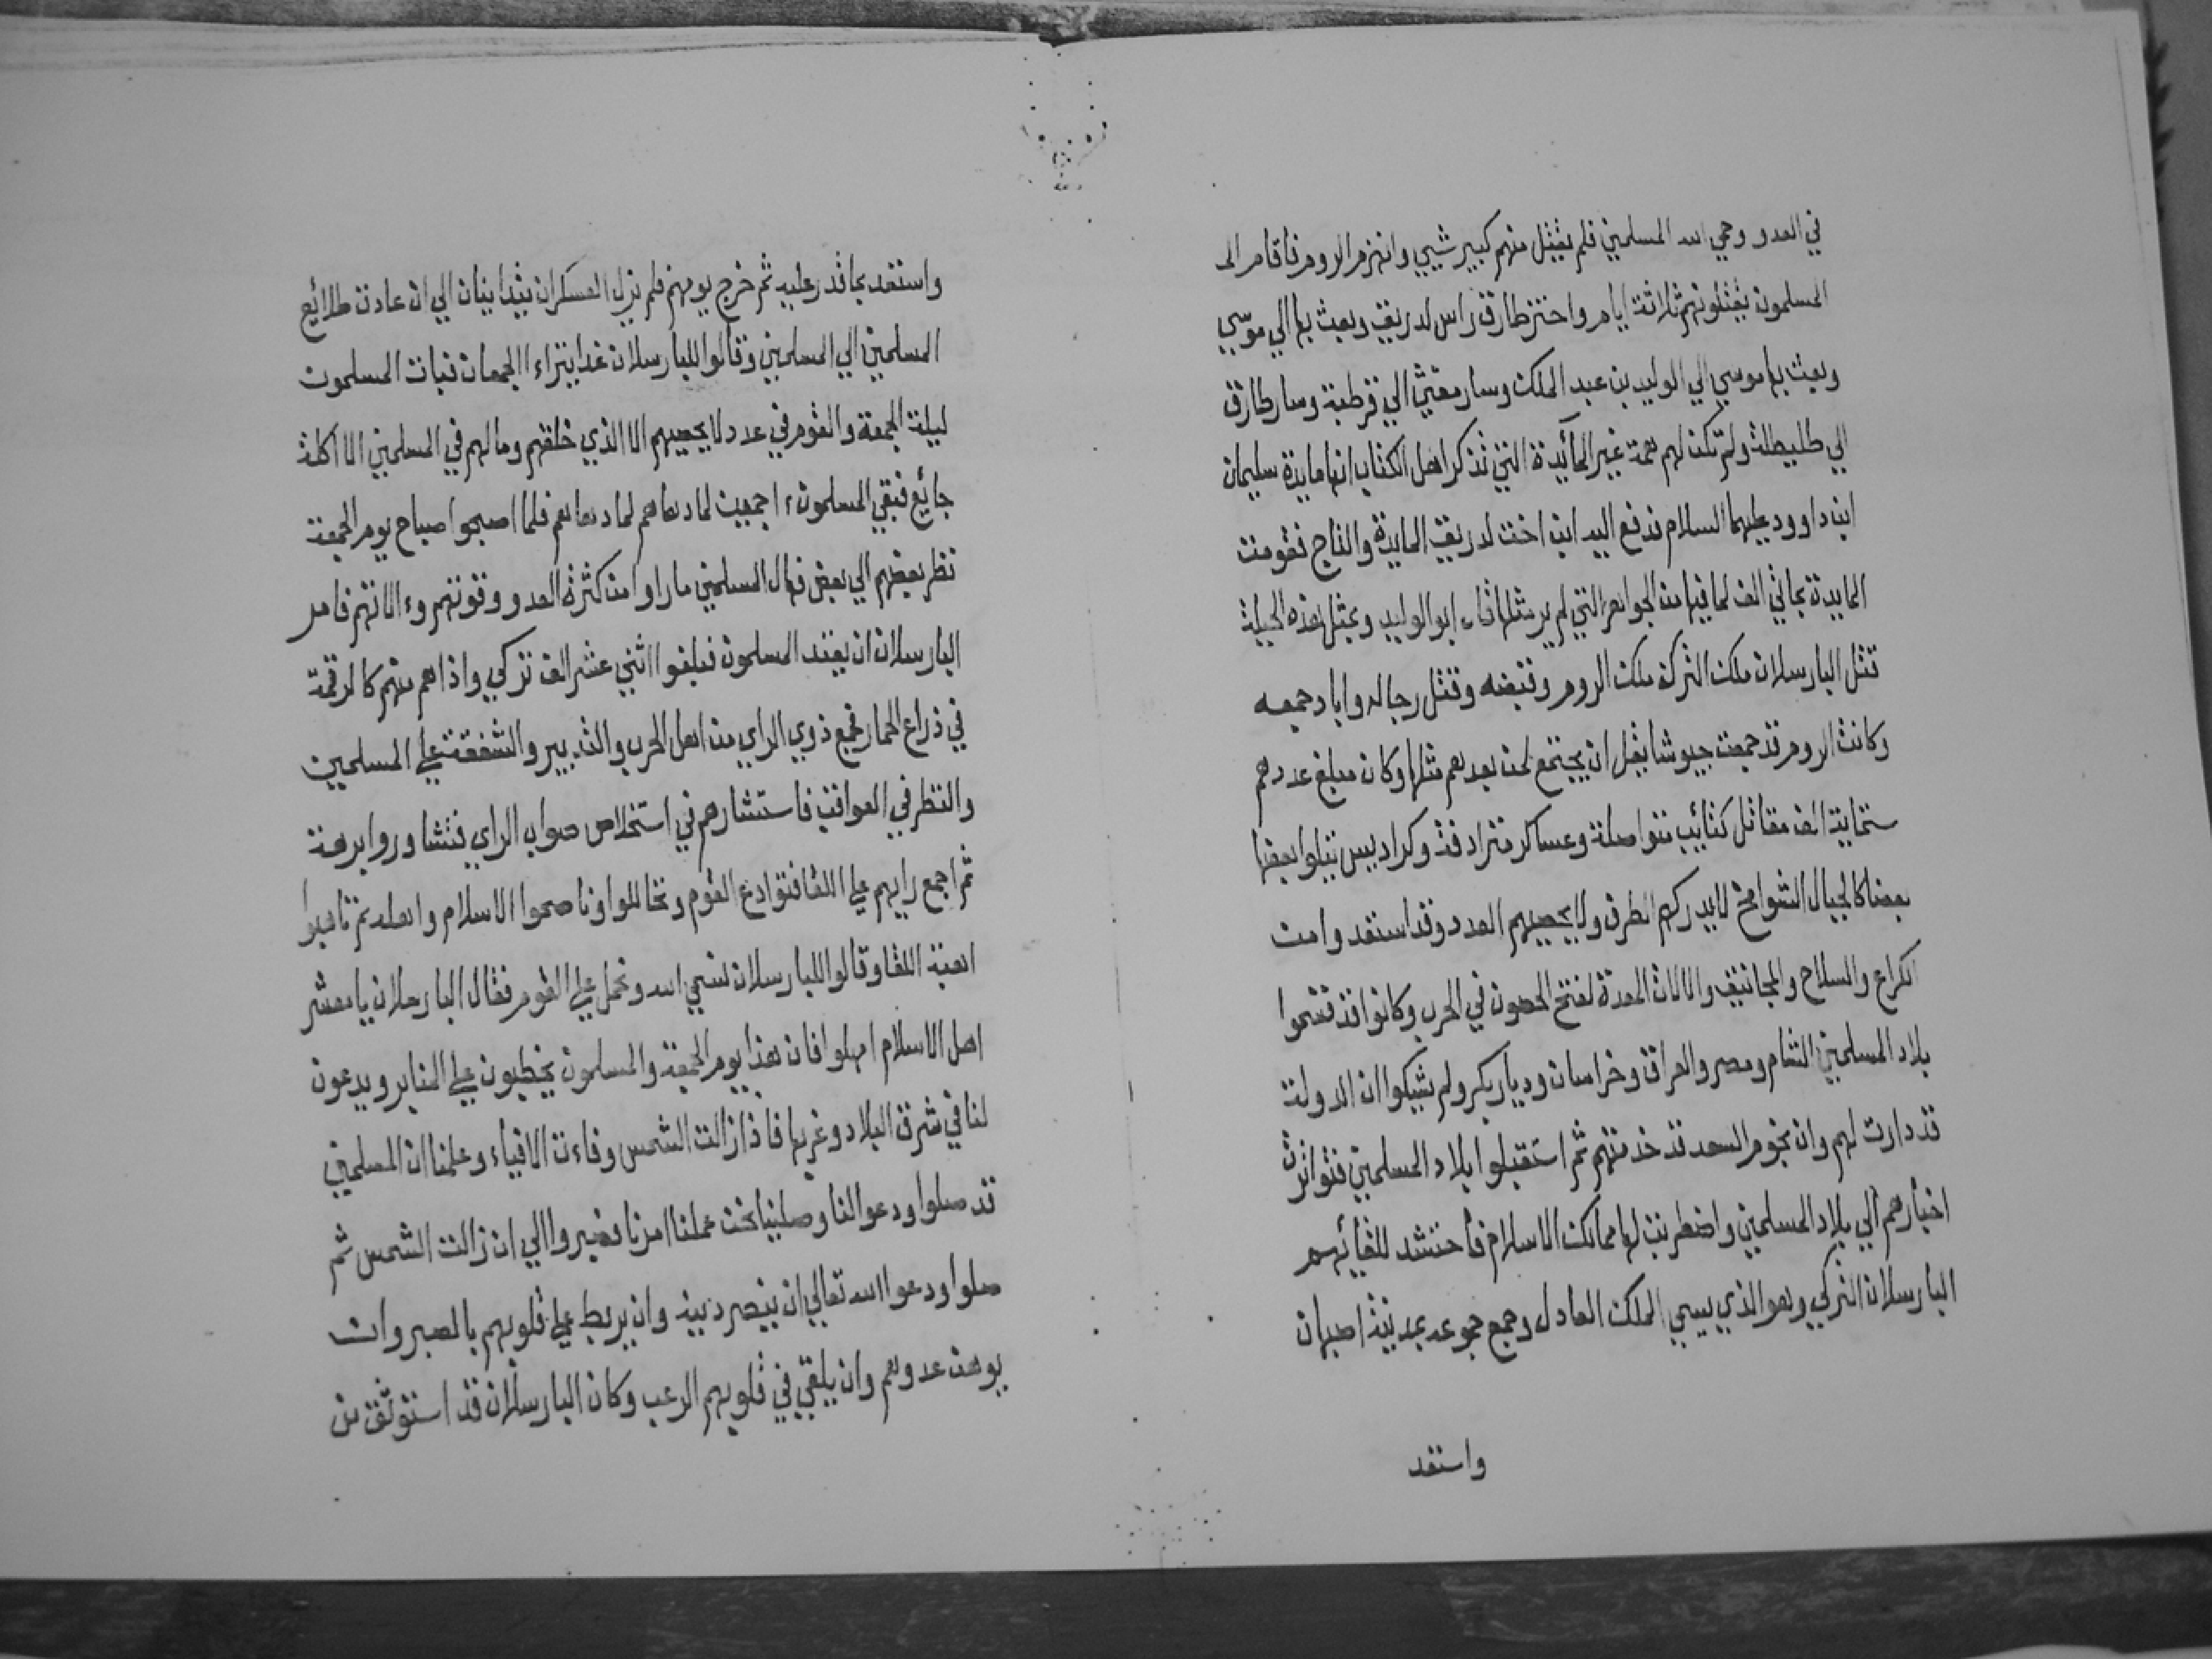 في العدو وحمي الله المسلمين فلم يقتل منهم كبير شيي وانهزم الروم فأقام الـ
المسلمون يقتلونهم ثلاثة ايام واحتز طارق راس لدريق وبعث بها الي موسي
وبعث بها موسي الي الوليد بن عبد الملك وسار مغيث الي قرطبة وسار طارق
الي طليطلة ولم تكن لهم همة غير المائدة التي تذكر اهل الكتاب انها مايدة سليمان
ابن داوود عليهما السلام فدفع اليه ابن اخت لدريق المايدة والتاج فقومت
المايدة بمائي الف لما فيها من الجواهر التي لم ير مثلها قاله ابو الوليد وبمثل هذه الحيلة
قتل البارسلان ملك الترك ملك الروم وقبضه وقتل رجاله واباد جمعه
وكانت الروم قد جمعت جيوشا يقل ان يجتمع لمن بعدهم مثلها وكان مبلغ عددهم
ستماية الف مقاتل كتائب متواصلة وعساكر مترادفة وكراديس يتلوا بعضها
بعضا كالجبال الشوامخ لا يدركهم الطرف ولا يحصيهم العدد وقد استعدوا من
الكراع والسلاح والمجانيق والالات المعدة لفتح الحصون في الحرب وكانوا قد قسموا
بلاد المسلمين الشام ومصر والعراق وخراسان وديار بكر ولم يشكوا ان الدولة
قد دارت لهم وان نجوم السعد قد خدمتهم ثم استقبلوا بلاد المسلمين فتواترت
اخبارهم الي بلاد المسلمين واضطربت لها ممالك الاسلام فأحتشد للقائهم
البارسلان التركي وهو الذي يسمي الملك العادل وجمع جموعه بمدينة اصبهان
واستعد
واستعد بما قدر عليه ثم خرج يومهم فلم يزل العسكران يتدانيان الي ان عادت طلايع
المسلمين الي المسلمين وقالوا للبارسلان غدا يتراء الجمعان فبات المسلمون
ليلة الجمعة والقوم في عدد لا يحصيهم الا الذي خلقهم وما لهم في المسلمين الا اكلة
جائع فبقي المسلمون واجمين لما دهاهم فلما اصبحوا صباح يوم الجمعة
نظر بعضهم الي بعض فهال المسلمين ما راوا من كثرة العدو وقوتهم وءالاتهم فامر
البارسلان ان يعد المسلمون فبلغوا اثني عشر الف تركي واذا هم منهم كالرقمة
في ذراع الحمار فجمع ذوي الراي من اهل الحرب والتدبير والشفقة علي المسلمين
والنظر في العواقب فاستشارهم في استخلاص صواب الراي فتشاوروا برهة
ثم اجمع رايهم علي اللقا فتوادع القوم وتحاللوا وناصحوا الاسلام واهله ثم تاهبوا
اهبة اللقا وقالوا للبارسلان نسمي الله ونحمل علي القوم فقال البارسلان يا معشر
اهل الاسلام امهلوا فان هذا يوم الجمعة والمسلمون يخطبون علي المنابر ويدعون
لنا في شرق البلاد وغربها فاذا زالت الشمس وفاءت الافياء وعلمنا ان المسلمين
قد صلوا ودعوا لنا وصلينا نحن عملنا امرنا فصبروا الي ان زالت الشمس ثم
صلوا ودعوا الله تعالي ان ينصر دينه وان يربط علي قلوبهم بالصبر وان
يوهن عدوهم وان يلقي في قلوبهم الرعب وكان البارسلان قد استوثق من